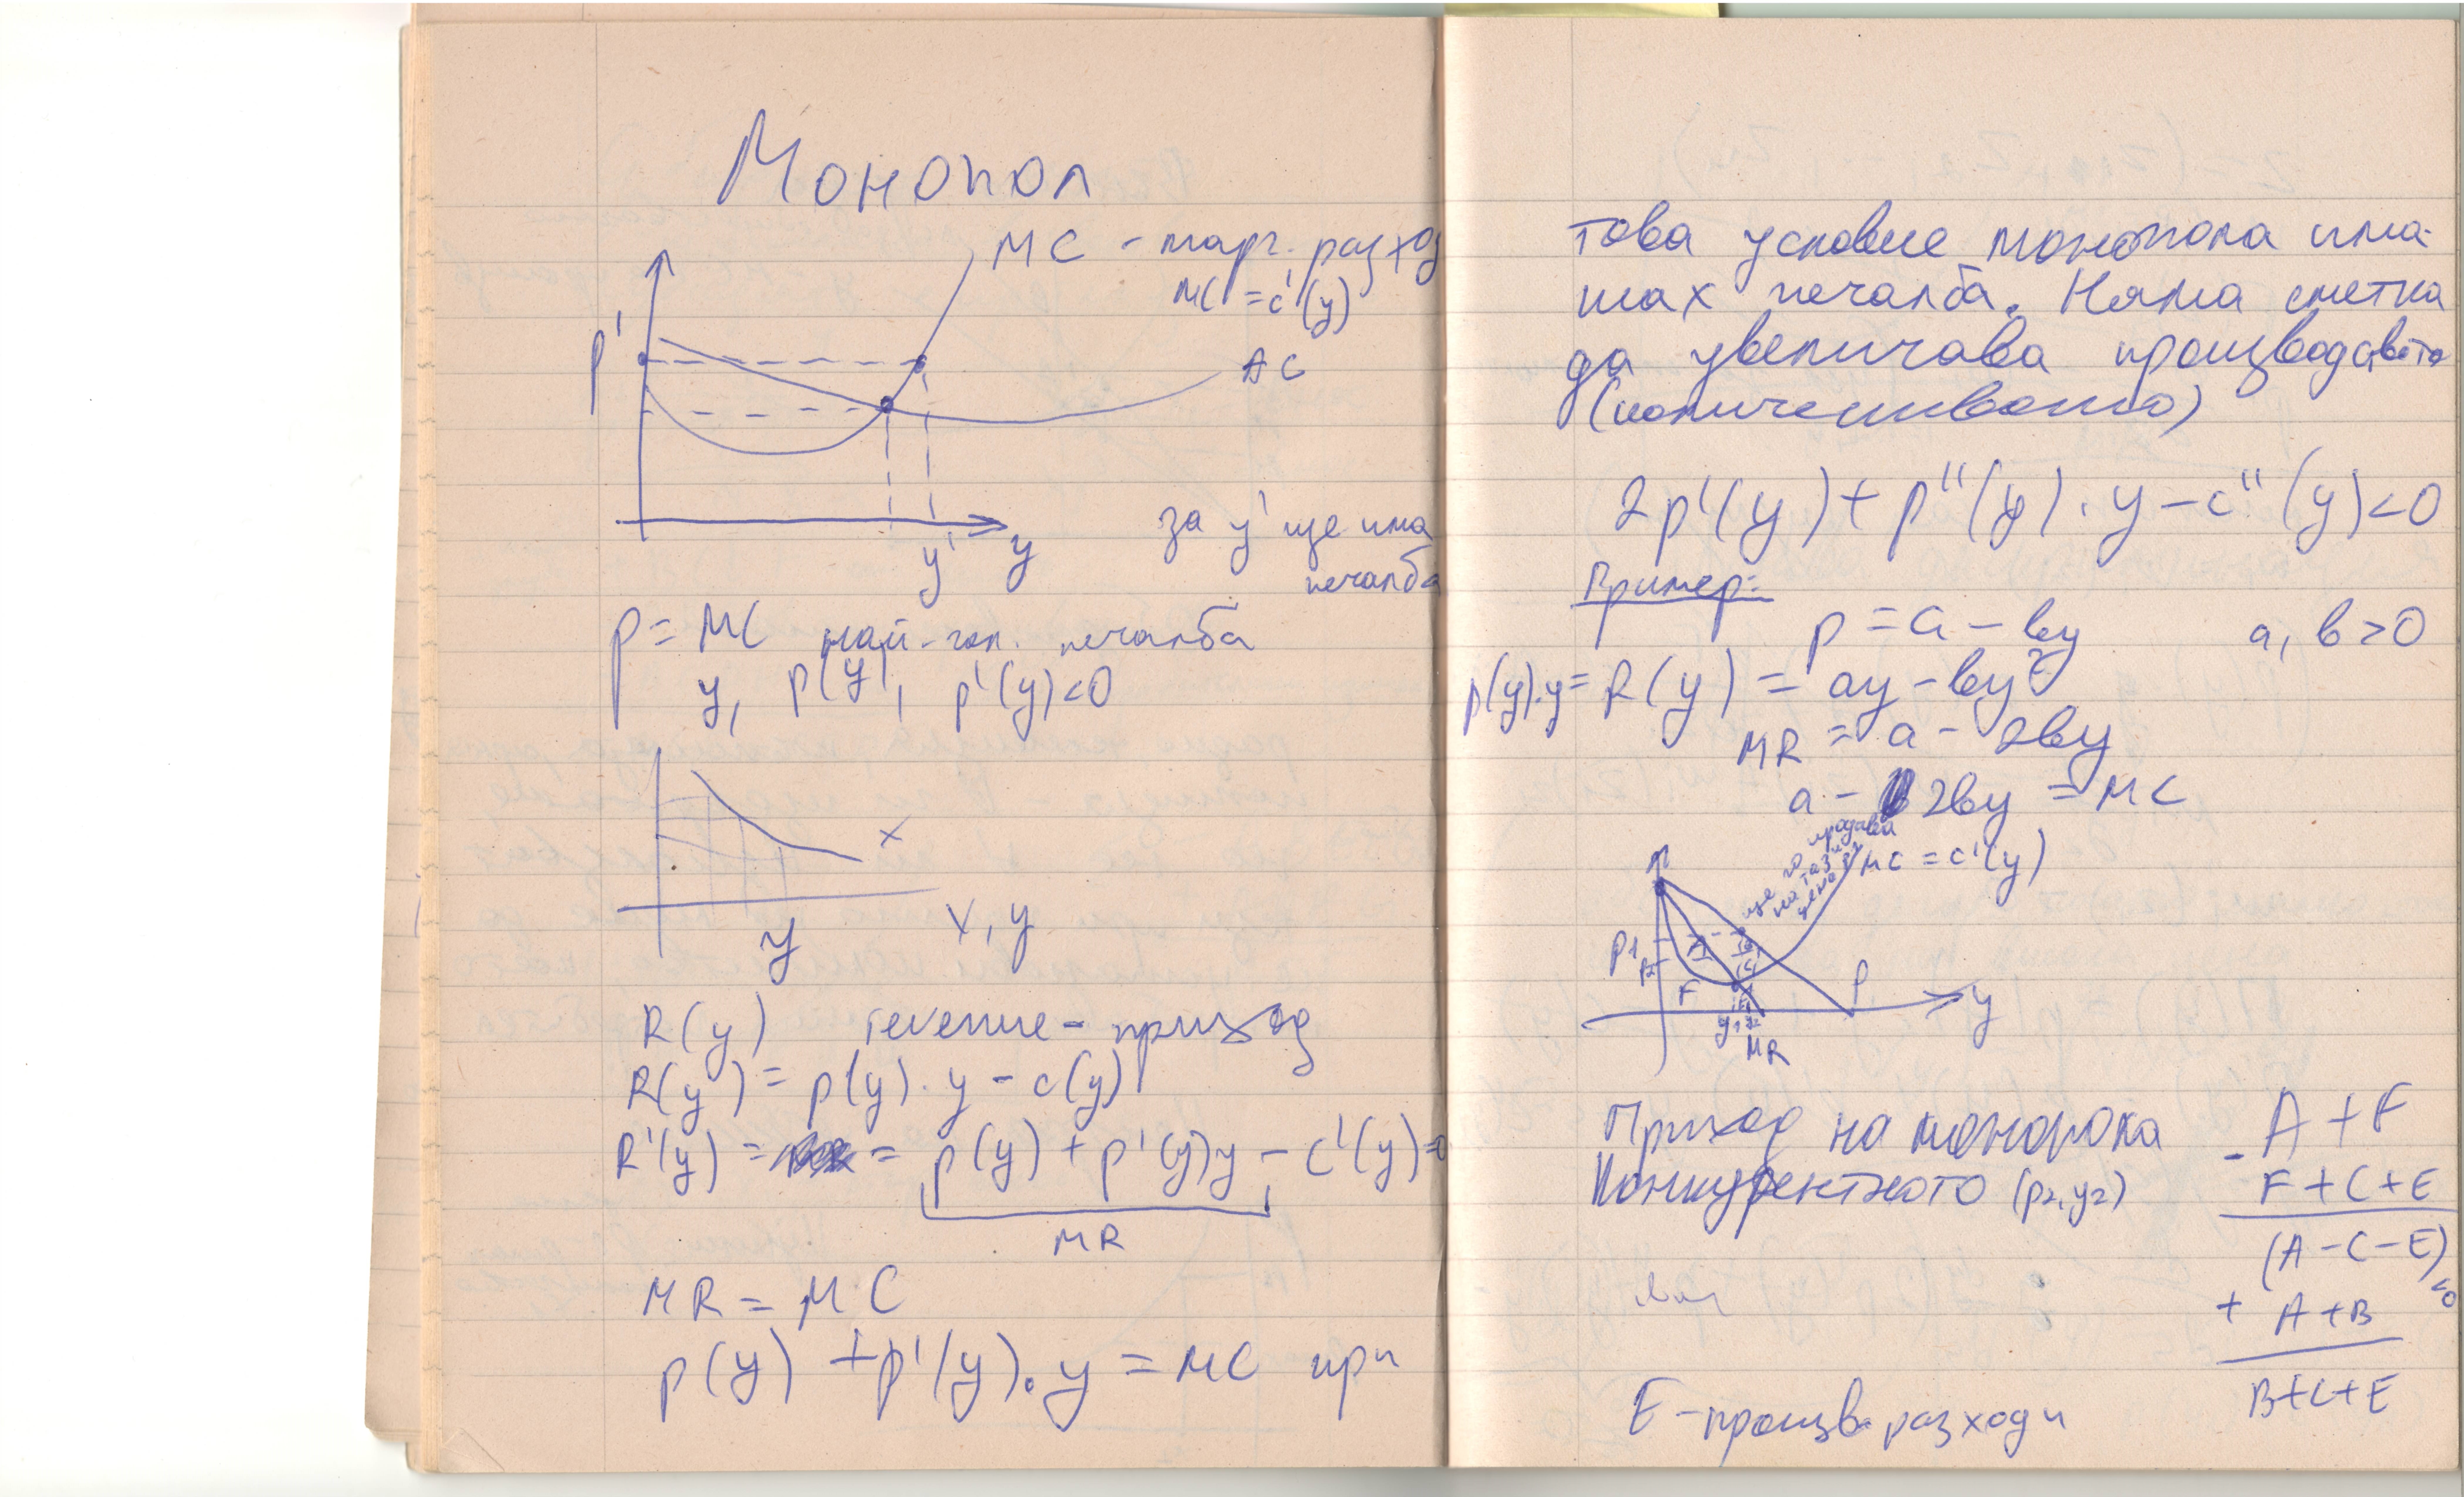 Монопол
MC - марг. разход
MC = c'(y)
p'
AC
y'
y
за y' ще има
печалба
p = MC най-гол. печалба
y, p(y), p'(y)<0
x
y
x, y
R(y) течение - приход
R(y) = p(y). y - c(y)
R'(y) = = p(y) + p'(y)y - c'(y)=0
MR
MR = MC
p(y) + p'(y). y = MC при
това условие монопола има
max печалба. Няма сметка
да увеличава производството
(количеството)
2p'(y) + p''(y). y - c''(y)<0
Пример:
p = a - by a, b > 0
p(y).y = R(y) = ay - by²
MR = a - 2by
a - 2by = MC
ще го продава
на тази
цена
MC = c'(y)
p1
p2
A
B
C
F
E
p
y
y1 y2
MR
Приход на монопола - A + F
Конкурентното (p2, y2) F + C + E
(A - C - E) <0
+ A + B
B + C + E
E - произв. разходи